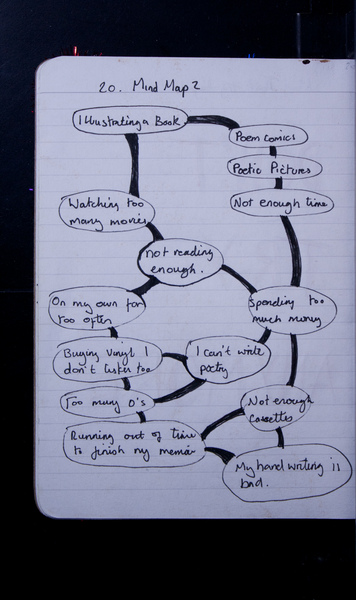 20. Mind Map 2
Illustrating a Book
Poem Comics
Poetic Pictures
Watching too
many movies
Not enough time
not reading
enough.
On my own for
too often
Spending too
much money
Buying Vinyl I
don't listen too
I can't write
poetry
Too many O's
Not enough
Cassettes
Running out of time
to finish my memoir
My hand writing is
bad.